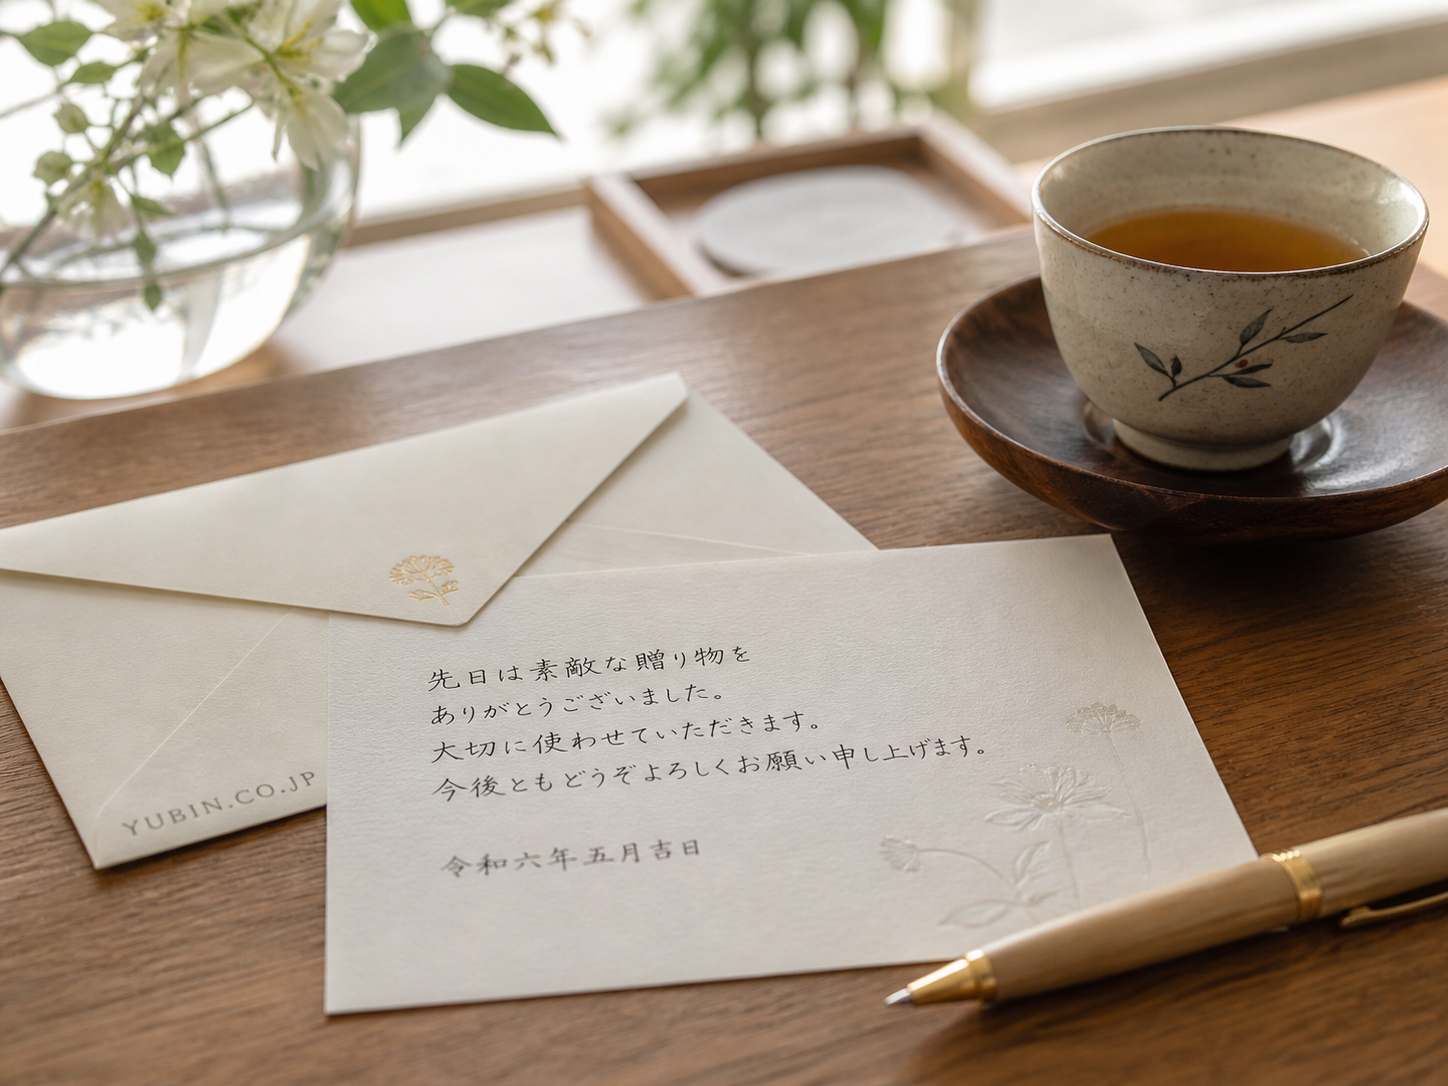 先日は素敵な贈り物を
ありがとうございました。
大切に使わせていただきます。
今後ともどうぞよろしくお願い申し上げます。
令和六年五月吉日
YUBIN.CO.JP